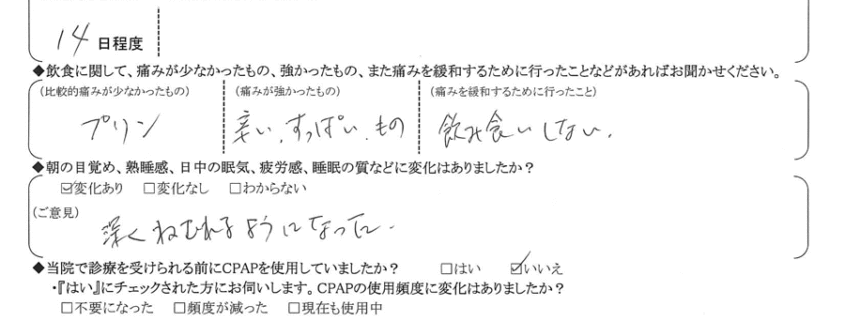 14 日程度
◆飲食に関して、痛みが少なかったもの、強かったもの、また痛みを緩和するために行ったことなどがあればお聞かせください。
(比較的痛みが少なかったもの) (痛みが強かったもの) (痛みを緩和するために行ったこと)
プリン 辛い、すっぱい、もの 飲み食いしない。
◆朝の目覚め、熟睡感、日中の眠気、疲労感、睡眠の質などに変化はありましたか?
☑変化あり □変化なし □わからない
(ご意見)
深くねむれるようになった。
◆当院で診療を受けられる前にCPAPを使用していましたか? □はい ☑いいえ
・『はい』にチェックされた方にお伺いします。CPAPの使用頻度に変化はありましたか?
□不要になった □頻度が減った □現在も使用中